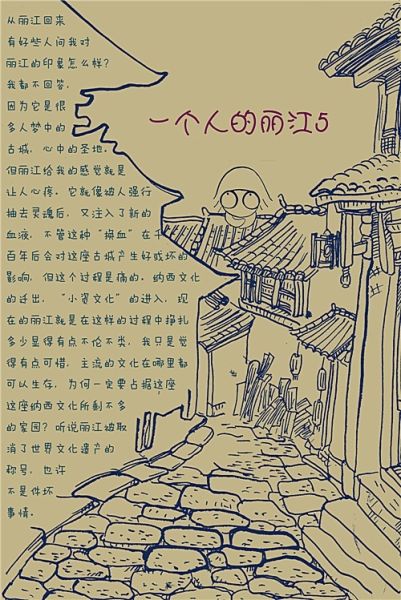 一个人的丽江5
从丽江回来
有好些人问我对
丽江的印象怎么样？
我都不回答，
因为它是很
多人梦中的
古城，心中的圣地。
但丽江给我的感觉就是
让人心疼。它就像被人强行
抽去灵魂后，又注入了新的
血液，不管这种“换血”在千
百年后会对这座古城产生好或坏的
影响，但这个过程是痛的。纳西文化
的迁出，“小资文化”的进入，现
在的丽江就是在这样的过程中挣扎
多少显得有点不伦不类，我只是觉
得有点可惜，主流的文化在哪里都
可以生存，为何一定要占据这座
这座纳西文化所剩不多
的家园？听说丽江被取
消了世界文化遗产的
称号，也许
不是件坏
事情。